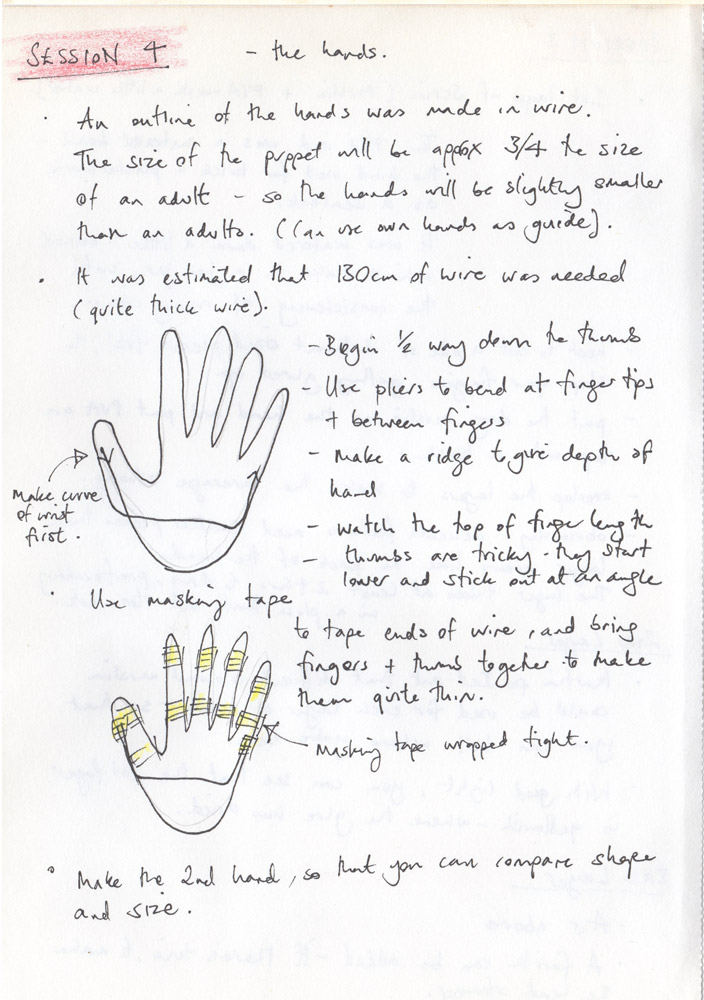 SESSION 4 - the hands.
· An outline of the hands was made in wire.
The size of the puppet will be appox 3/4 the size
of an adult - so the hands will be slightly smaller
than an adults. (Can use own hands as guide).
· It was estimated that 130cm of wire was needed
(quite thick wire).
- Begin 1/2 way down the thumb
- Use pliers to bend at finger tips
+ between fingers
- make a ridge to give depth of
hand
- watch the top of finger length
- thumbs are tricky - they start
lower and stick out at an angle
Make curve
of wrist
first.
· Use masking tape
to tape ends of wire, and bring
fingers + thumb together to make
them quite thin.
Masking tape wrapped tight.
· Make the 2nd hand, so that you can compare shape
and size.